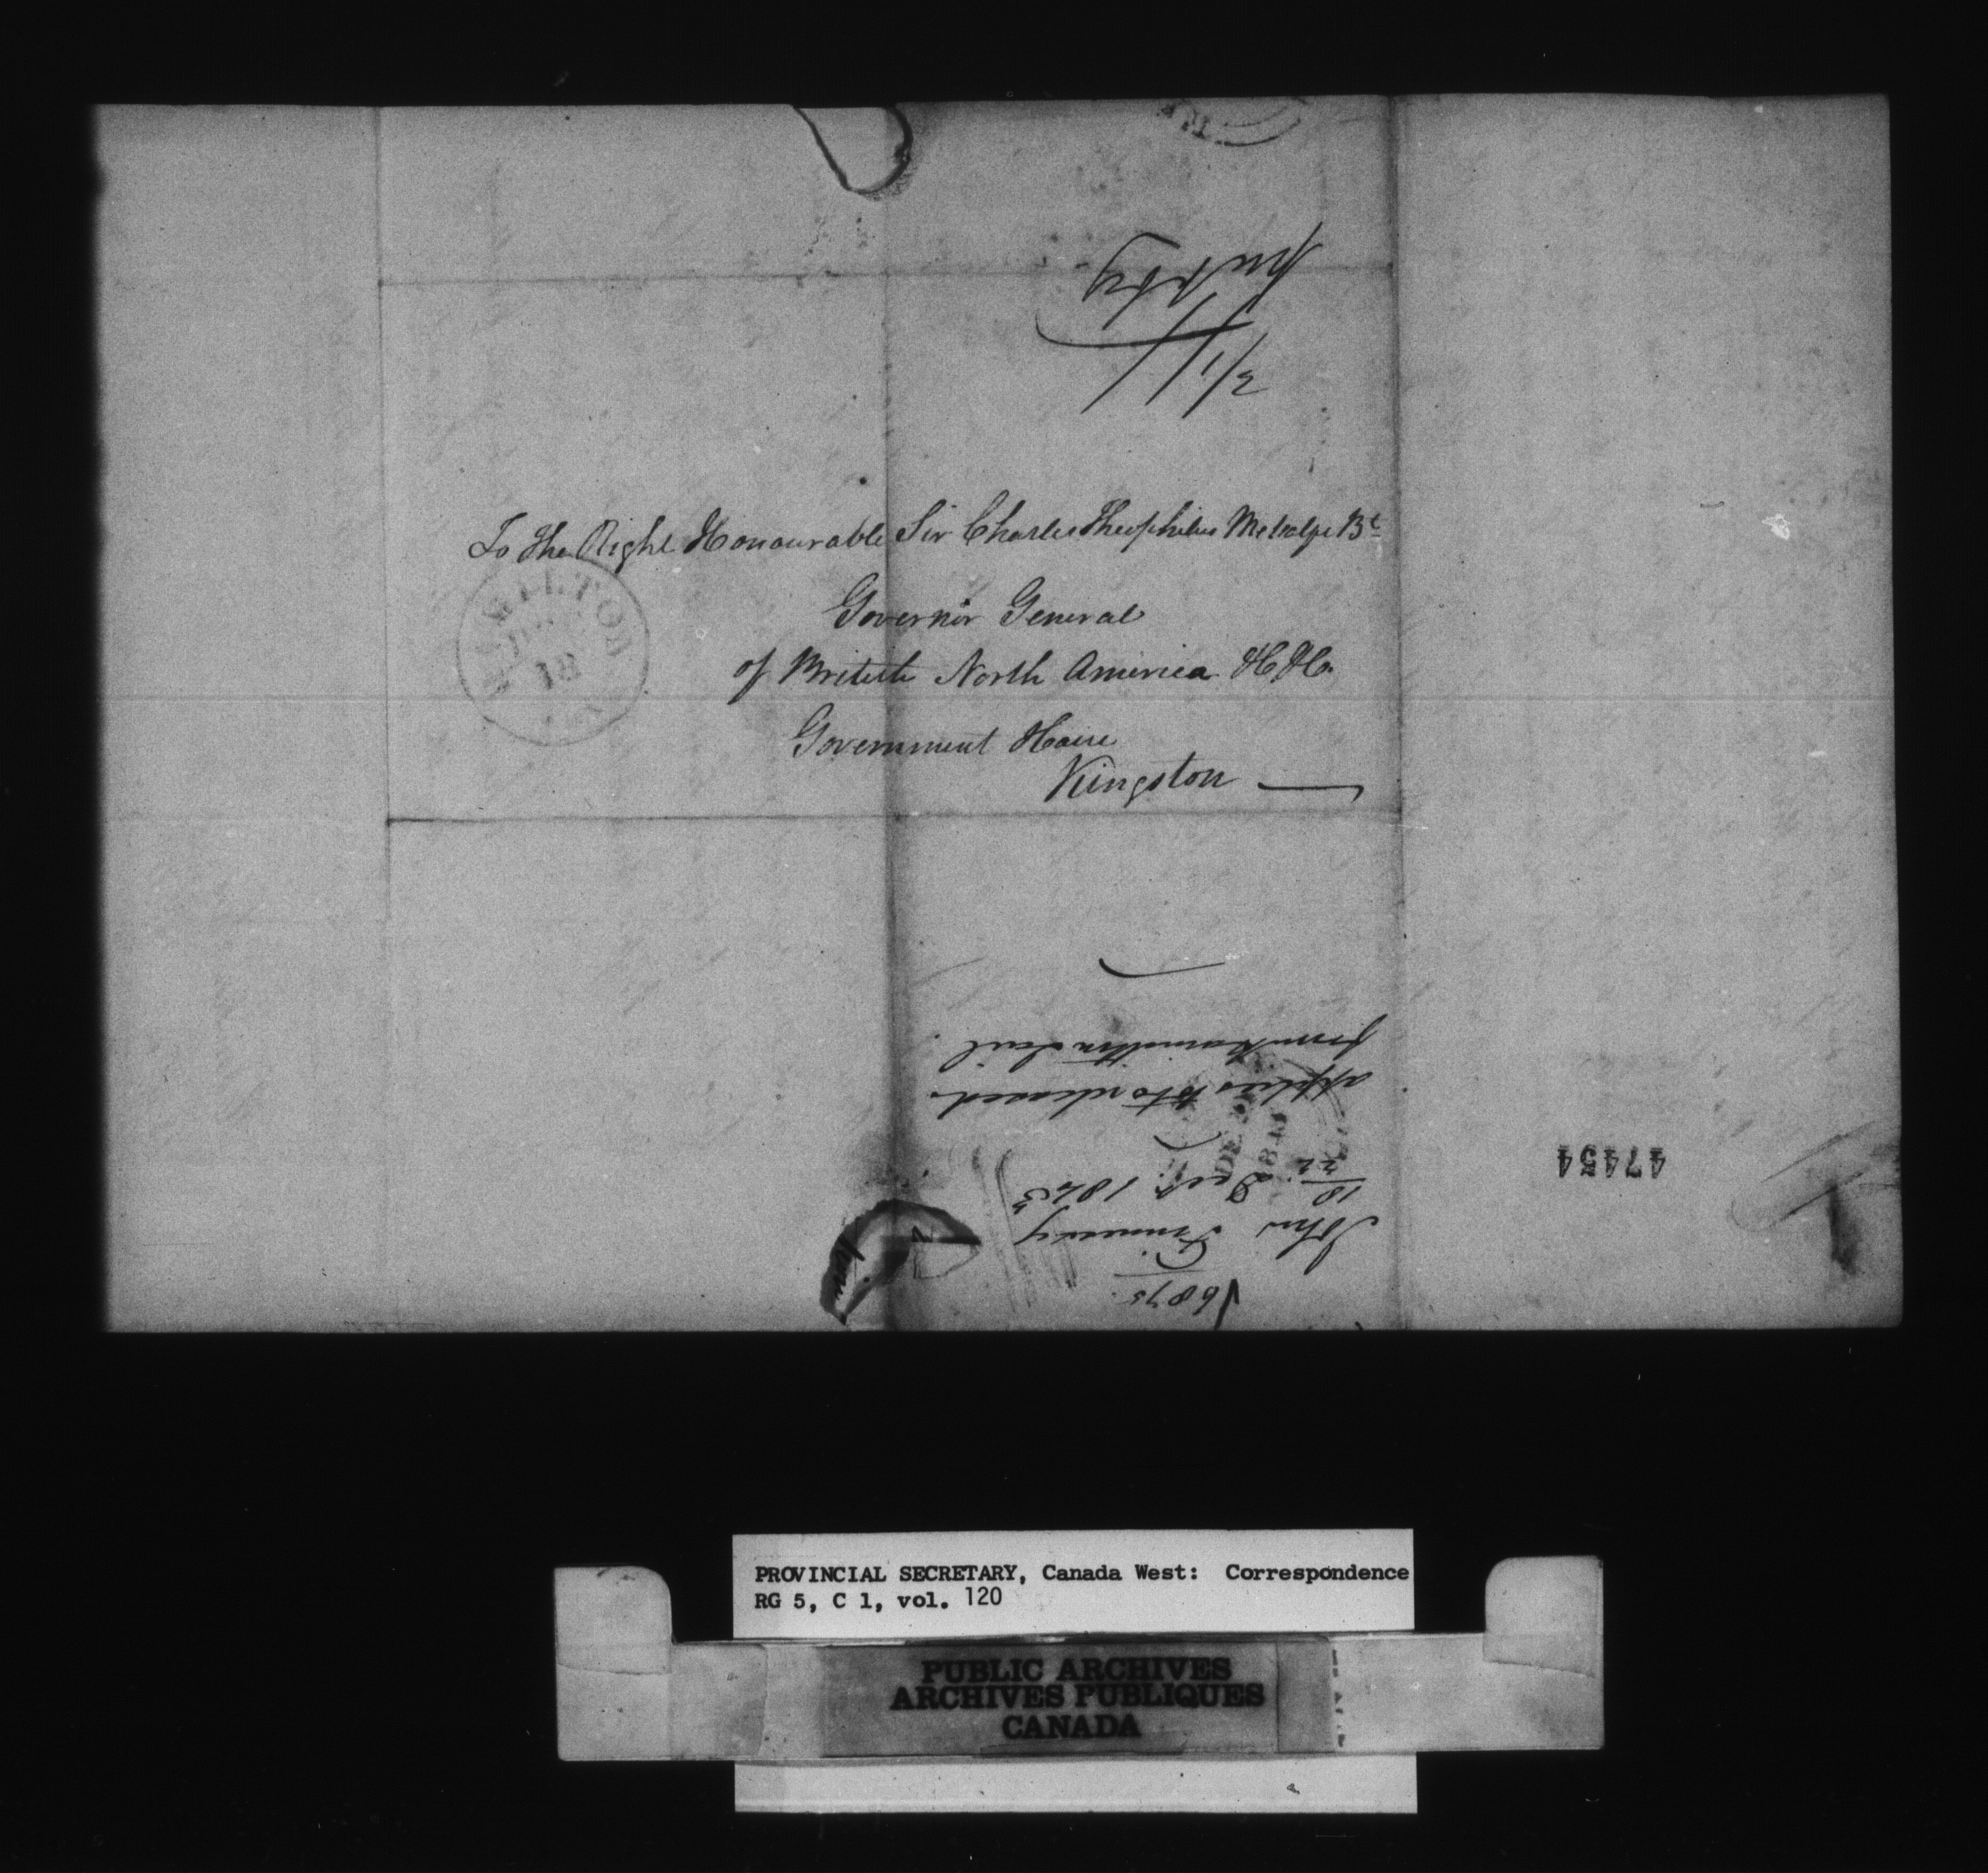 To The Right Honourable Sir Charles Theophilus Metcalfe Bt
Governor General
of British North America &c &c
Government House
Kingston
HAMILTON
18
√6875
John
18 Decr. 1843
22
applies to be released
from Hamilton Gaol.
47454
PROVINCIAL SECRETARY, Canada West: Correspondence
RG 5, C 1, vol. 120
PUBLIC ARCHIVES
ARCHIVES PUBLIQUES
CANADA